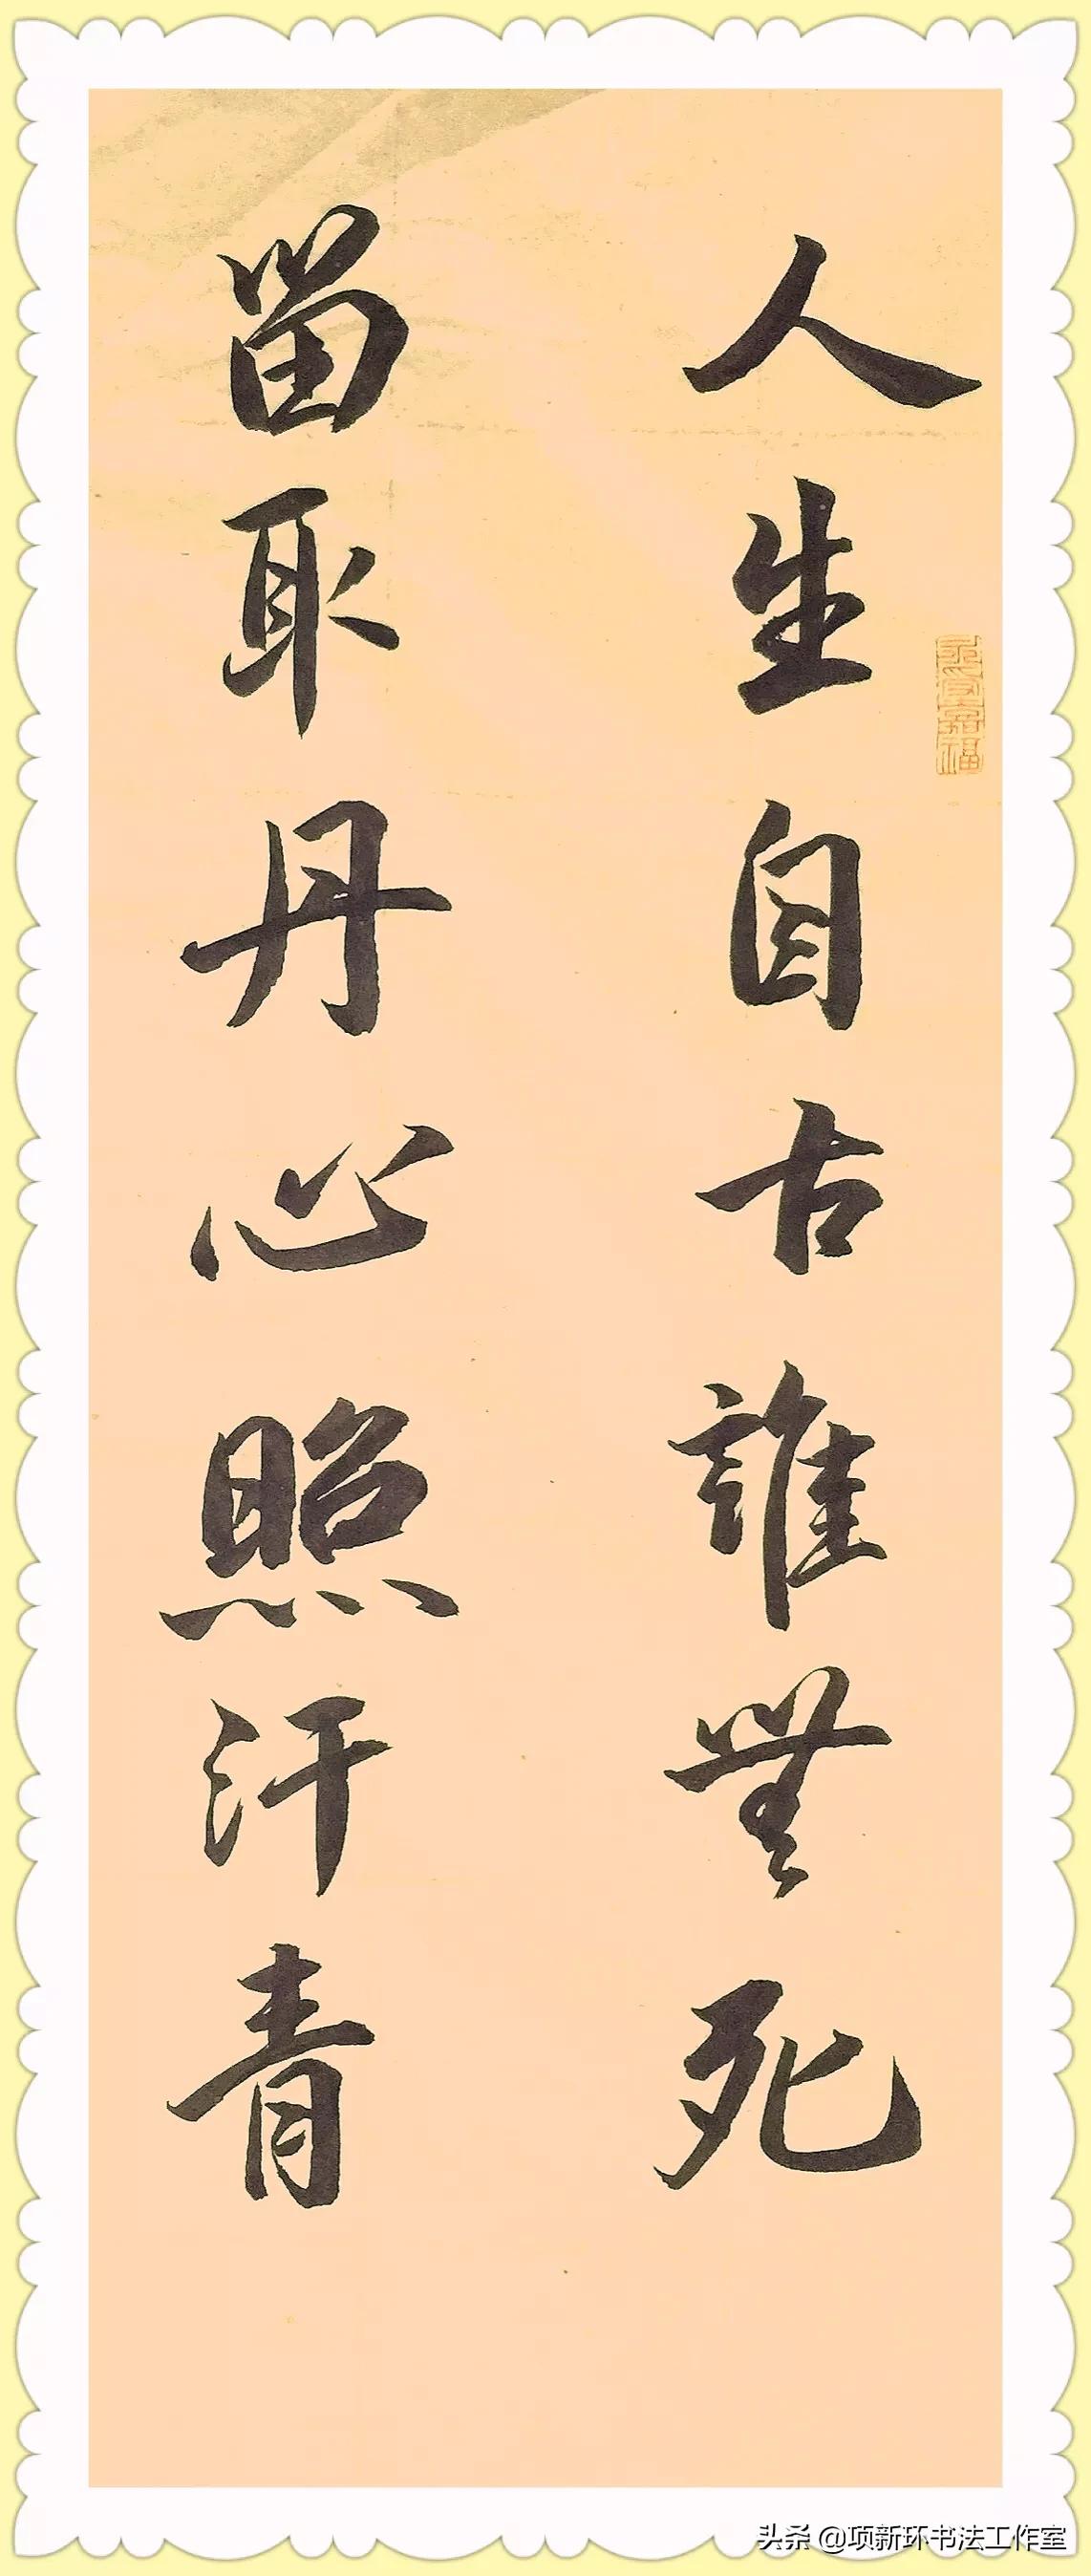 人生自古誰無死
留取丹心照汗青
头杀 @项新环书法工作室